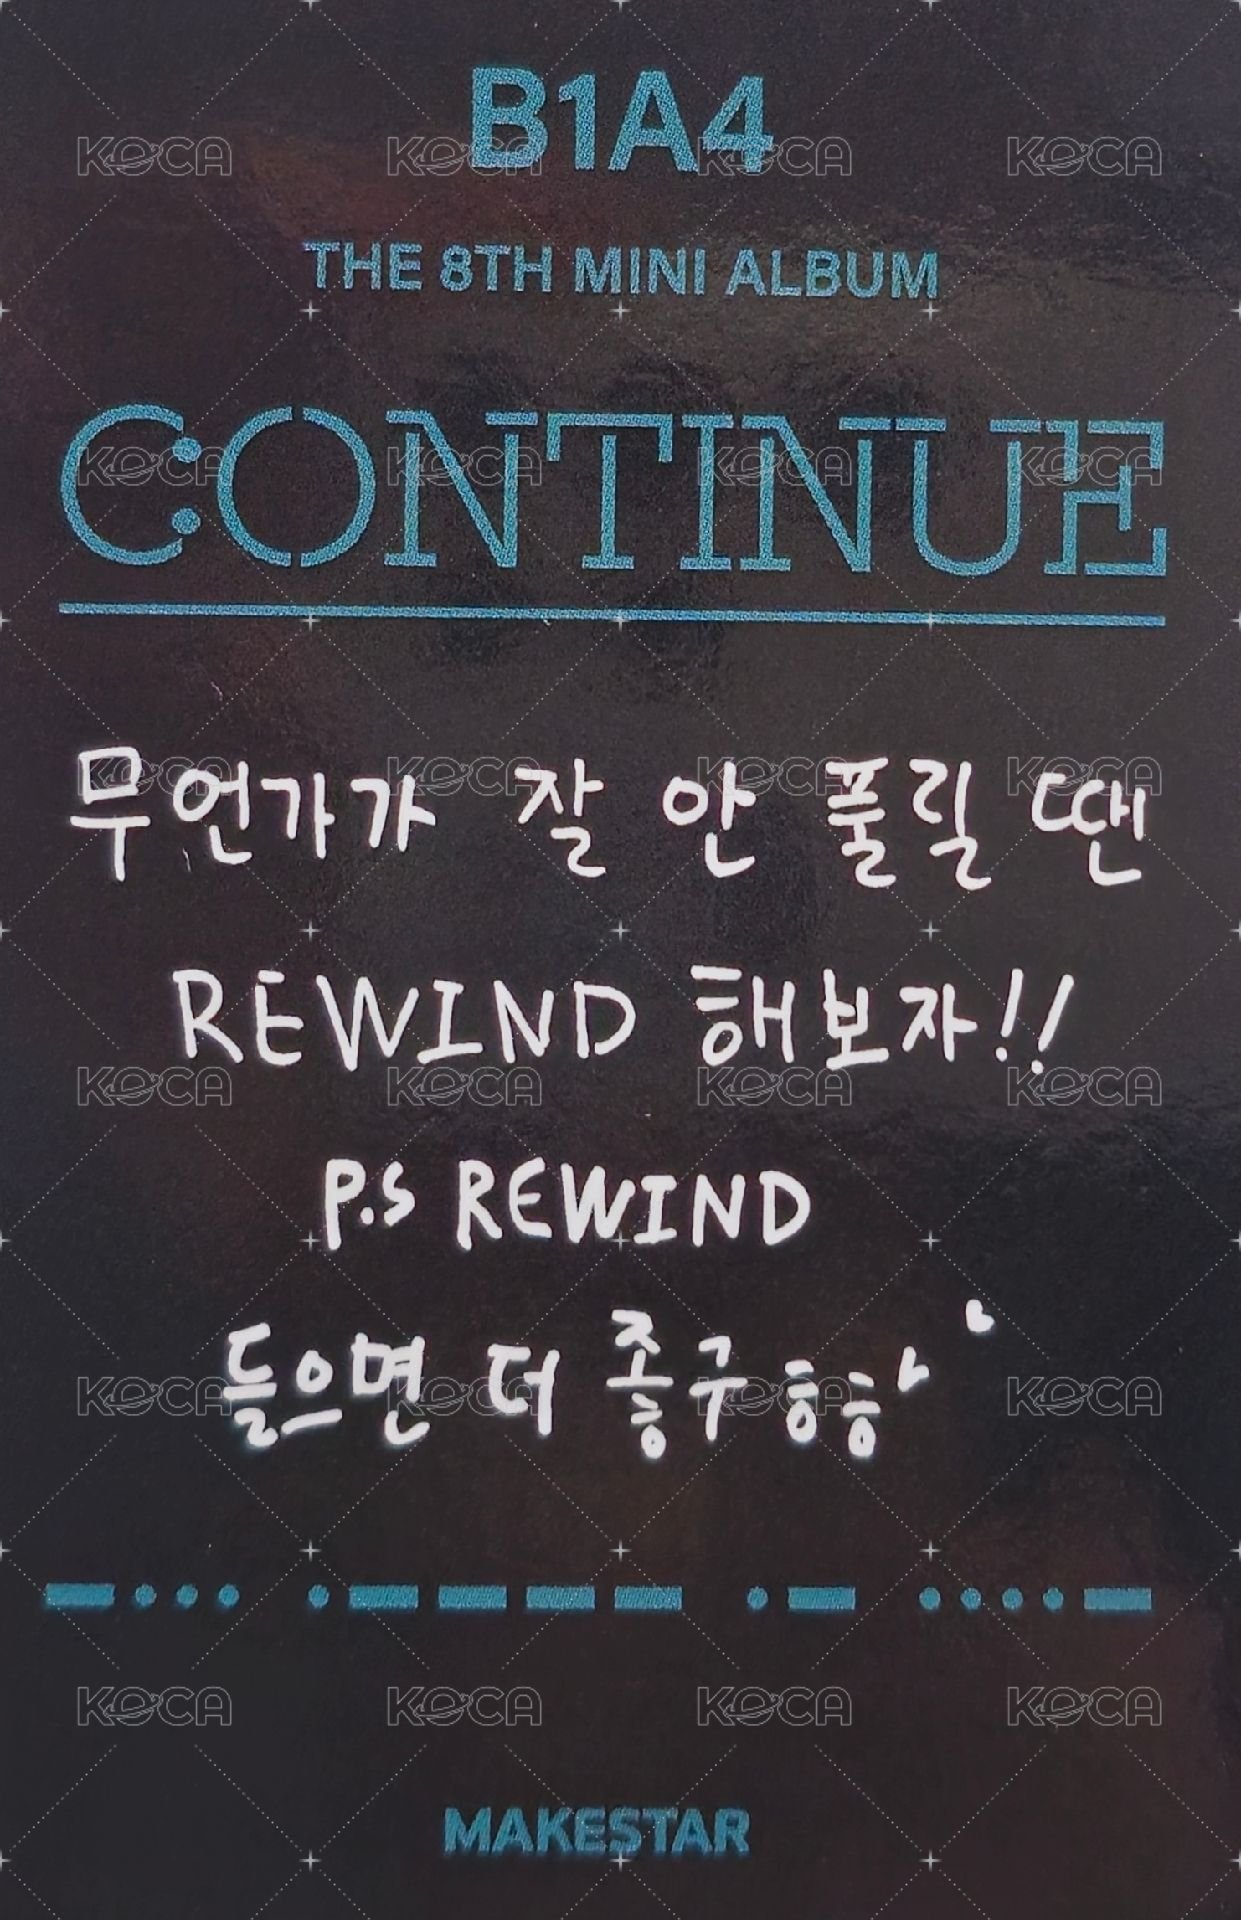 B1A4
THE 8TH MINI ALBUM
CONTINUE
무언가가 잘 안 풀릴 땐
REWIND 해보자!!
P.S REWIND
들으면 더 좋구
MAKESTAR
KOCA